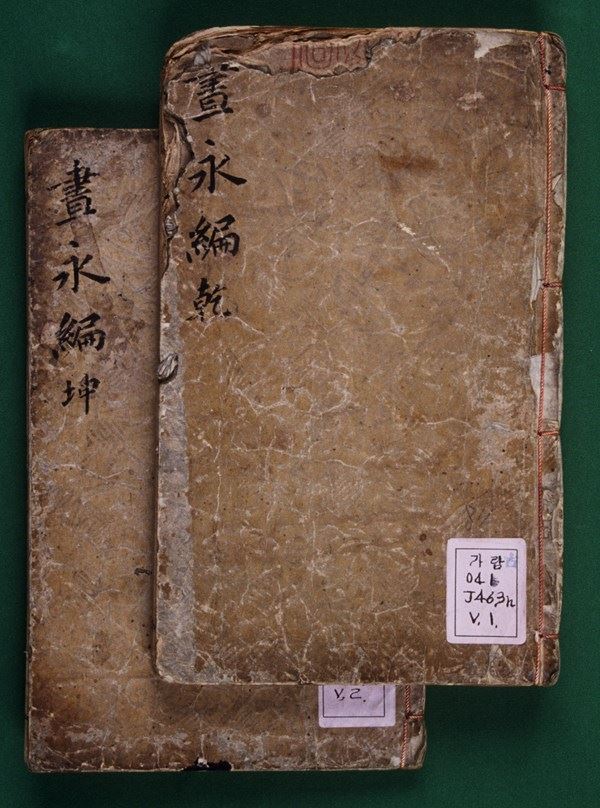 晝永編乾
晝永編坤
가람
041
J463h
V.1.
V.2.